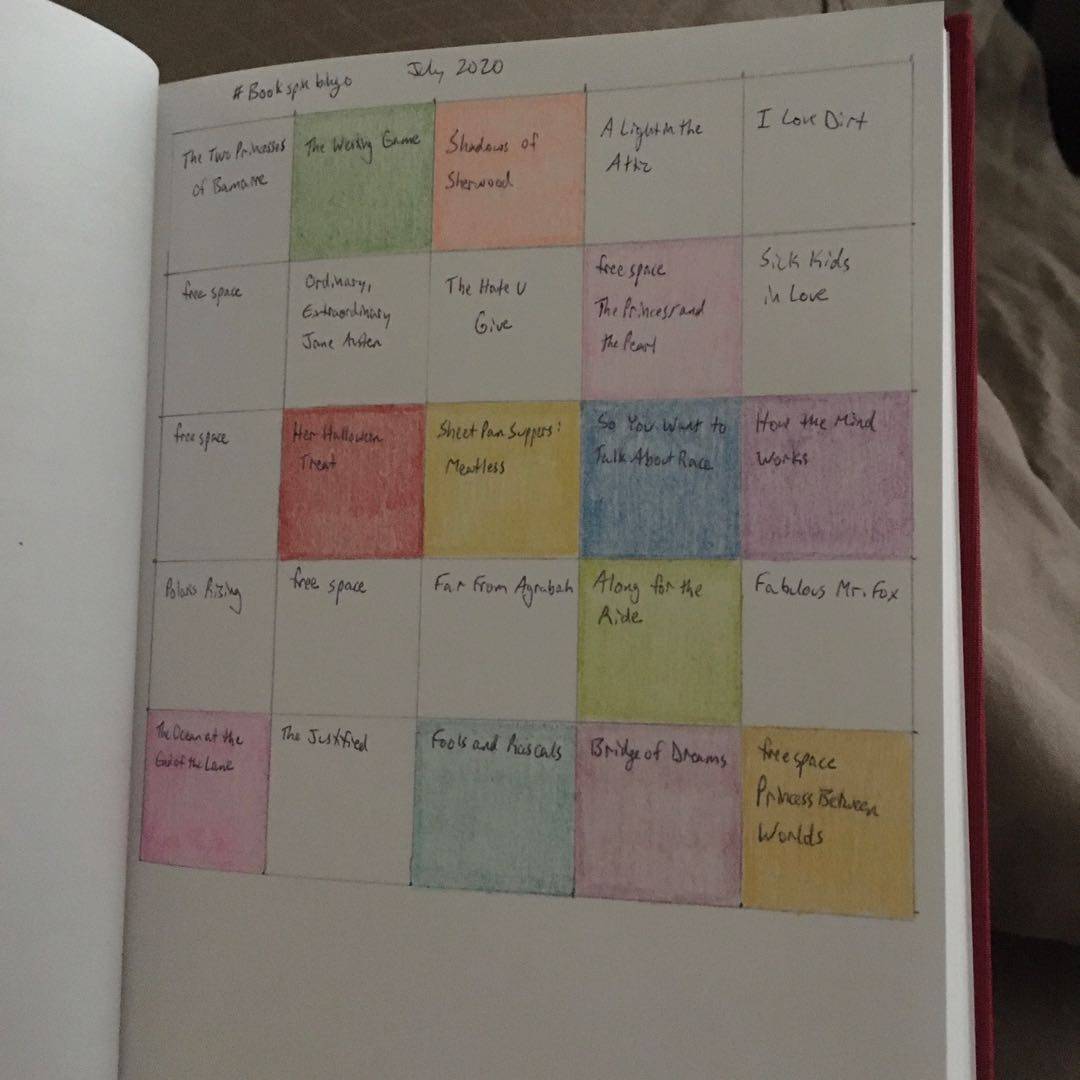 #Bookspin bingo July 2020
The Two Princesses
of Bamarre
The Westing Game
Shadows of
Sherwood
A Light in the
Attic
I Love Dirt
free space
Ordinary,
Extraordinary
Jane Austen
The Hate U
Give
free space
The Princess and
the Pearl
Sick Kids
in Love
free space
Her Halloween
Treat
Sheet Pan Suppers:
Meatless
So You Want to
Talk About Race
How the Mind
Works
Polaris Rising
free space
Far From Agrabah
Along for the
Ride
Fabulous Mr. Fox
The Ocean at the
End of the Lane
The Justified
Fools and Rascals
Bridge of Dreams
free space
Princess Between
Worlds